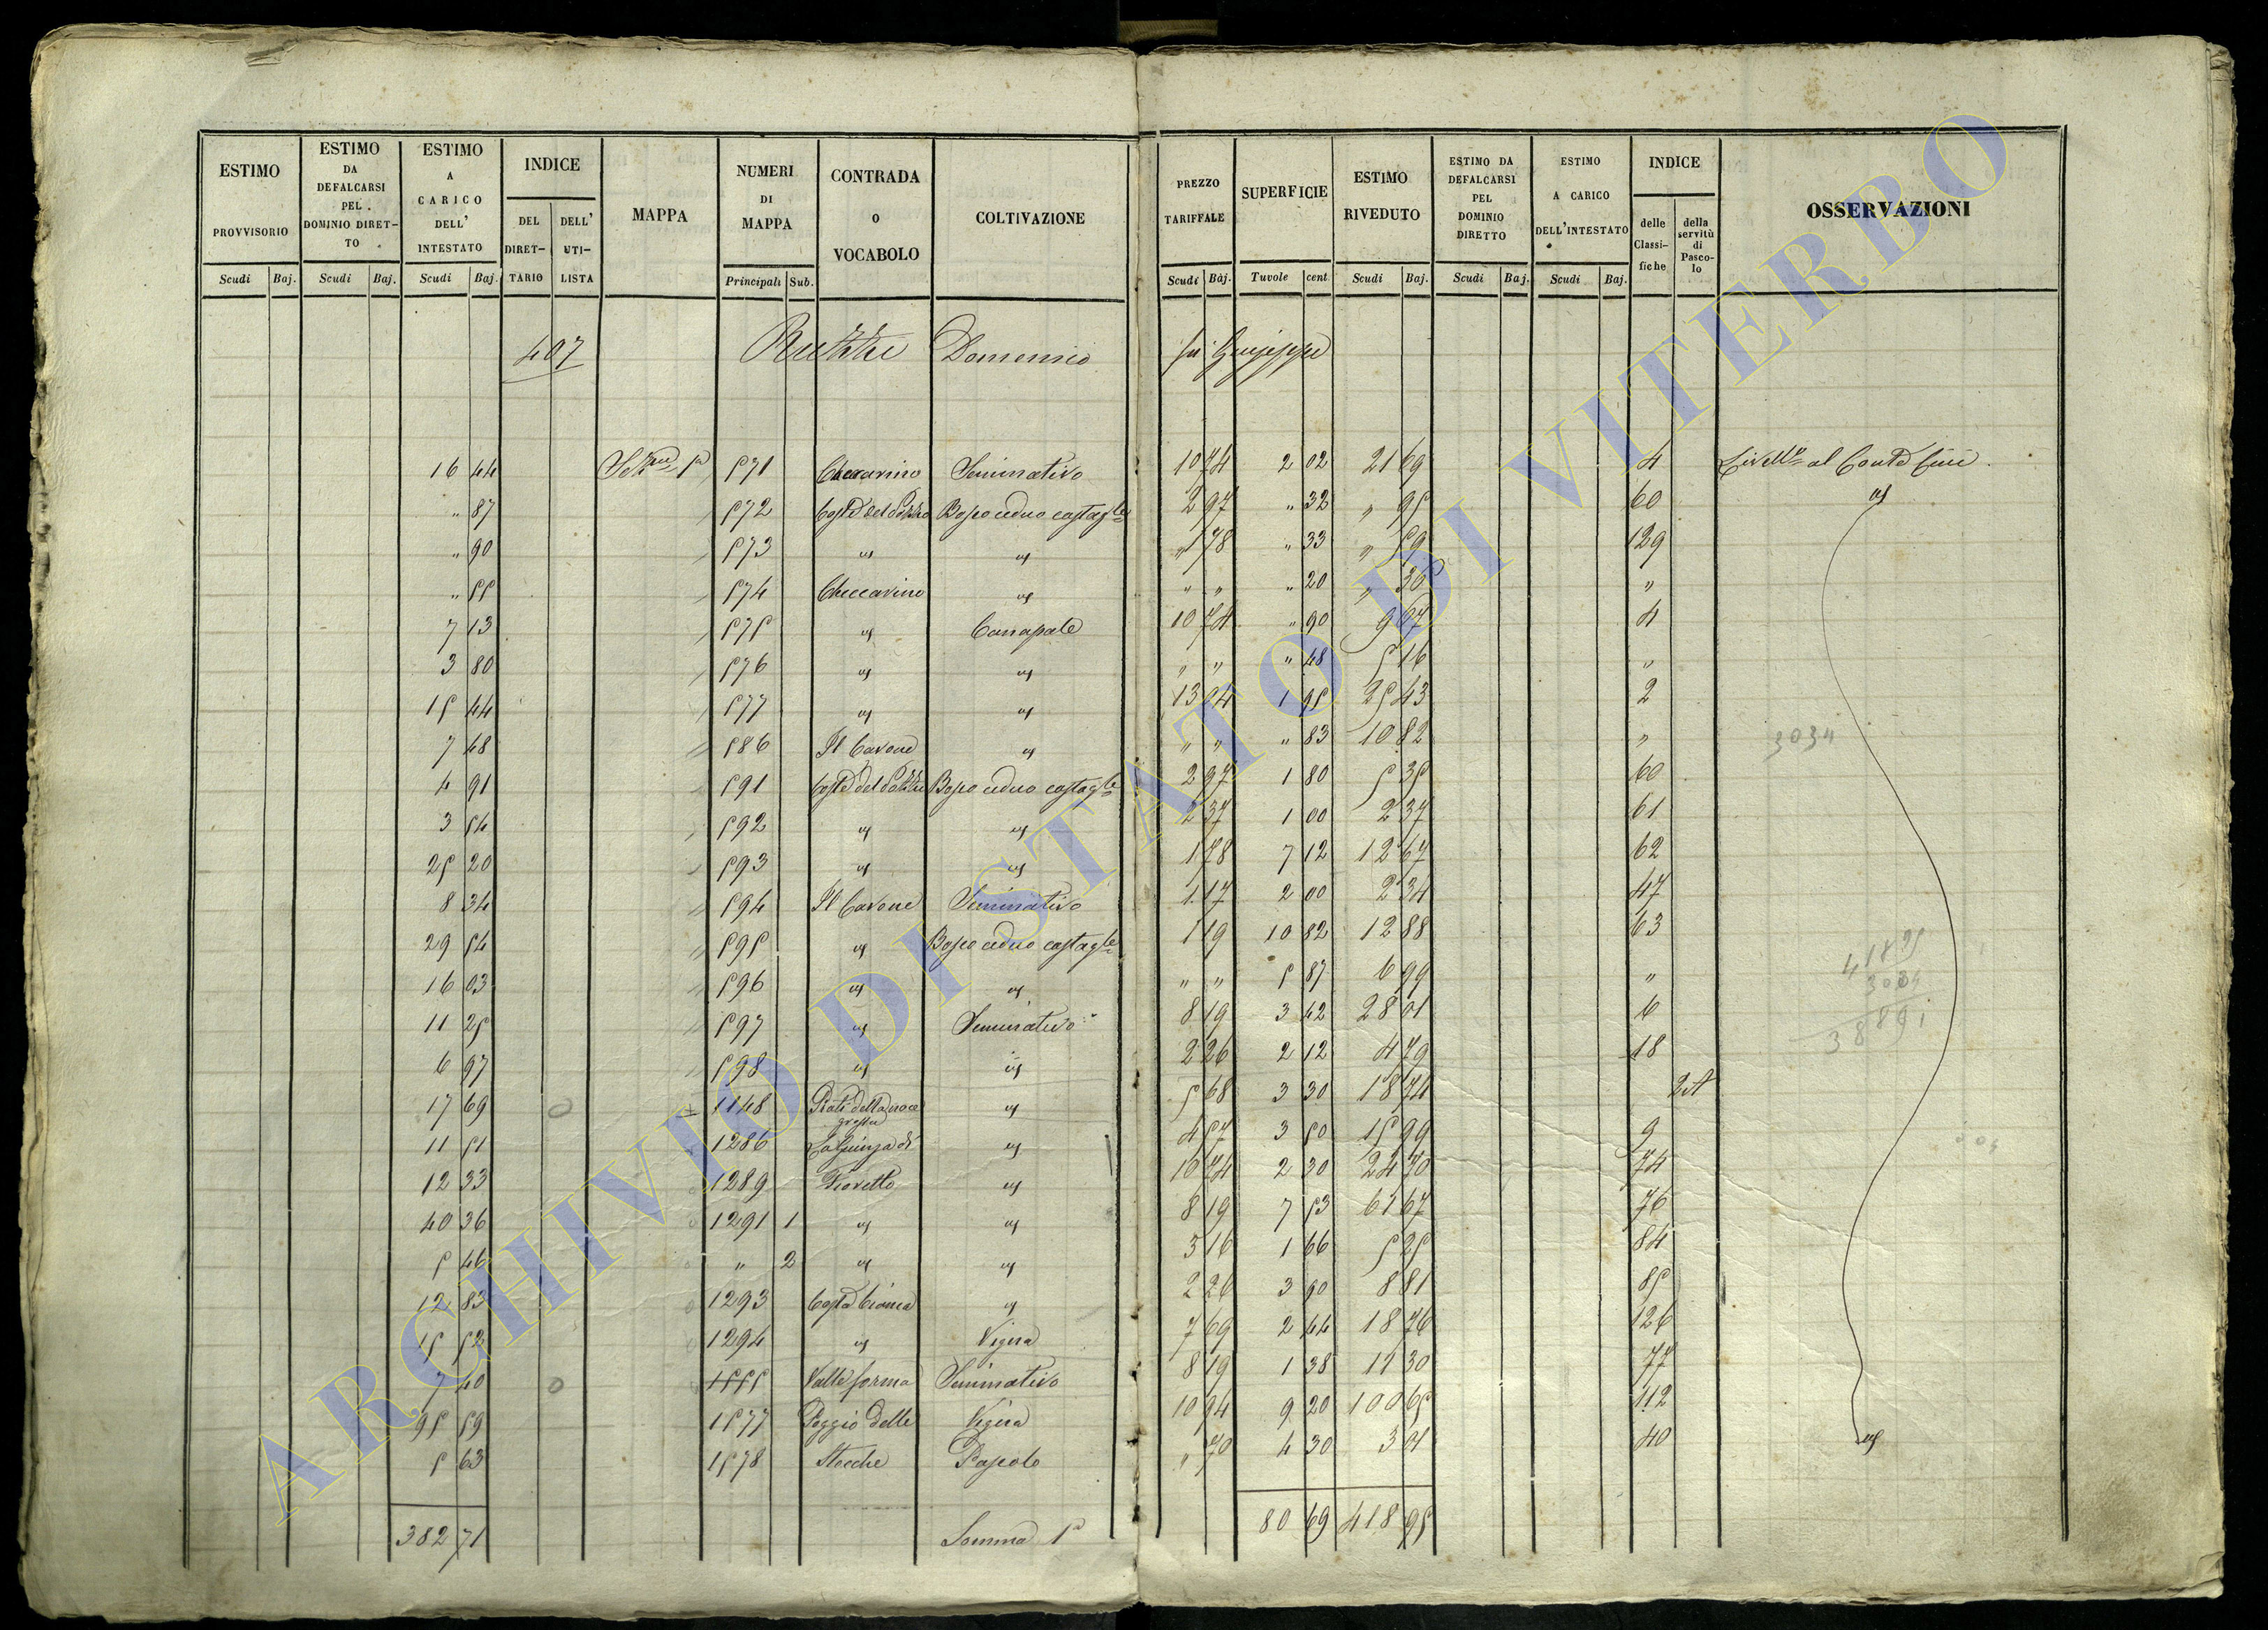 ESTIMO PROVVISORIO Scudi Baj.
ESTIMO DA DEFALCARSI PEL DOMINIO DIRETTO Scudi Baj.
ESTIMO A CARICO DELL' INTESTATO Scudi Baj.
INDICE DEL DIRETTARIO DELL' UTILISTA
MAPPA
NUMERI DI MAPPA Principali Sub.
CONTRADA O VOCABOLO
COLTIVAZIONE
PREZZO TARIFFALE Scudi Baj.
SUPERFICIE Tavole cent
ESTIMO RIVEDUTO Scudi Baj.
ESTIMO DA DEFALCARSI PEL DOMINIO DIRETTO Scudi Baj.
ESTIMO A CARICO DELL'INTESTATO Scudi Baj.
INDICE delle Classifiche della servitù di Pascolo
OSSERVAZIONI
407 Domenico fu Giuseppe
16 44 571 Checcarino Seminativo 10 74 2 02 21 69 4 al Conte
" 87 572 Coste del Pozzo Bosco ceduo castagle 2 97 " 32 " 95 60
" 90 573 " 1 78 " 33 " 59 129
" 55 574 Checcarino " " " 20 " 36 "
7 13 575 Canapale 10 74 " 90 9 67 4
3 80 576 " " " 48 5 16 "
15 44 577 13 04 1 95 25 43 2
7 48 586 Il Cavone " " " 83 10 82 "
3034
4 91 591 Coste del Pozzo Bosco ceduo castagle 2 97 1 80 5 35 60
3 54 592 2 37 1 00 2 37 61
25 20 593 1 78 7 12 12 67 62
8 34 594 Il Cavone Seminativo 1 17 2 00 2 34 47
29 54 595 Bosco ceduo castagle 1 19 10 82 12 88 63
16 03 596 " " 5 87 6 99 "
11 25 597 Seminativo 8 19 3 42 28 01 6
6 97 598 2 26 2 12 4 79 18
17 69 1148 Prati della noce grossa 5 68 3 30 18 74
11 51 1286 4 57 3 50 15 99 9
12 33 1289 Fioretto 10 74 2 30 24 70 74
40 36 1291 1 8 19 7 53 61 67 76
5 46 " 2 3 16 1 66 5 25 84
12 83 1293 Costa 2 26 3 90 8 81 85
15 52 1294 Vigna 7 69 2 44 18 76 126
7 40 1555 Valle forma Seminativo 8 19 1 38 11 30 77
95 59 1577 Poggio delle Vigna 10 94 9 20 100 65 112
5 63 1578 Stecche Pascolo " 70 4 30 3 01 40
382 71 Somma 80 69 418 95
ARCHIVIO DI STATO DI VITERBO